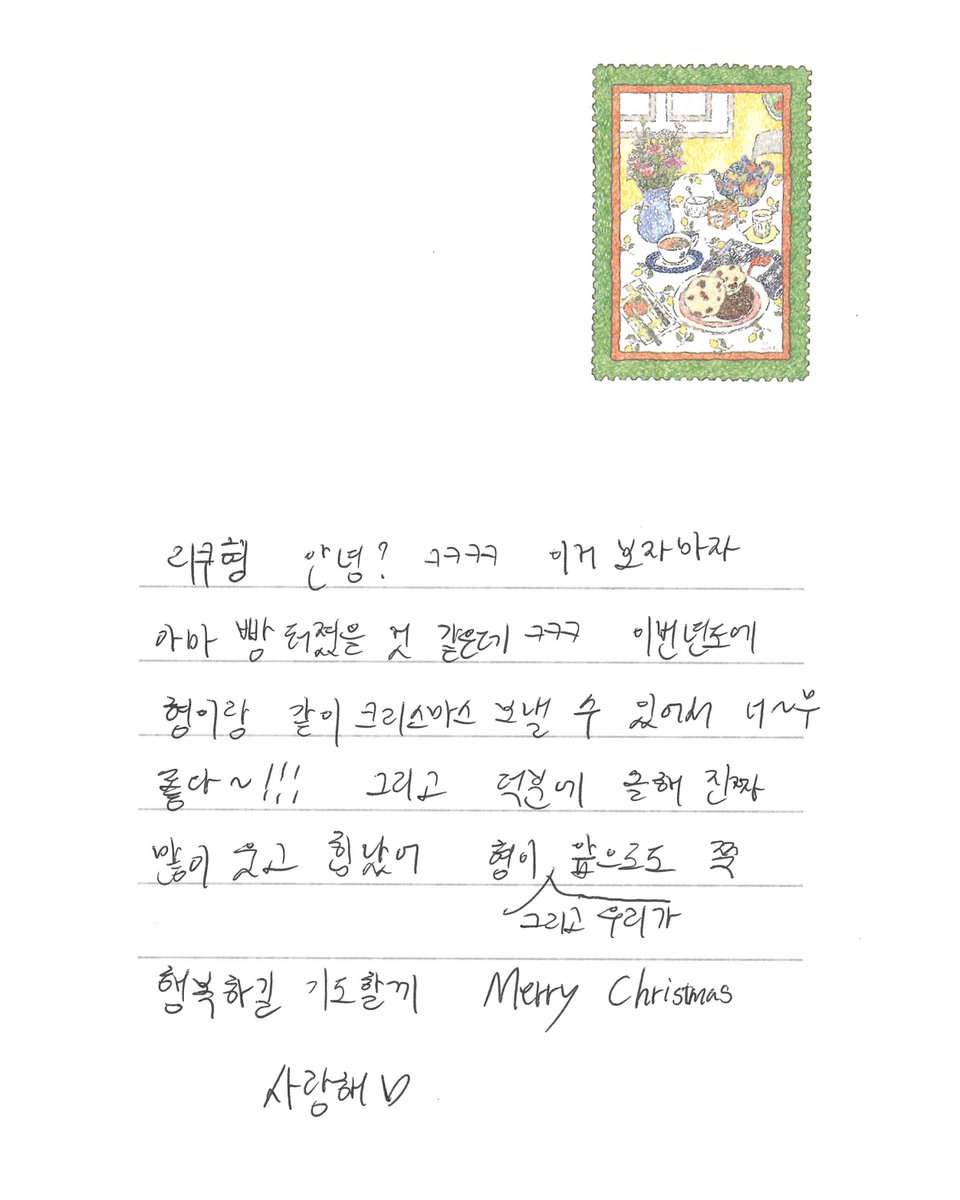 리쿠형 안녕? ㅋㅋㅋㅋ 이거 보자마자
아마 빵 터졌을 것 같은데 ㅋㅋㅋ 이번년도에
형이랑 같이 크리스마스 보낼 수 있어서 너~무
좋다~!!! 그리고 덕분에 올해 진짜
많이 웃고 힘났어 형이 앞으로도 쭉
그리고 우리가
행복하길 기도할께 Merry Christmas
사랑해♡